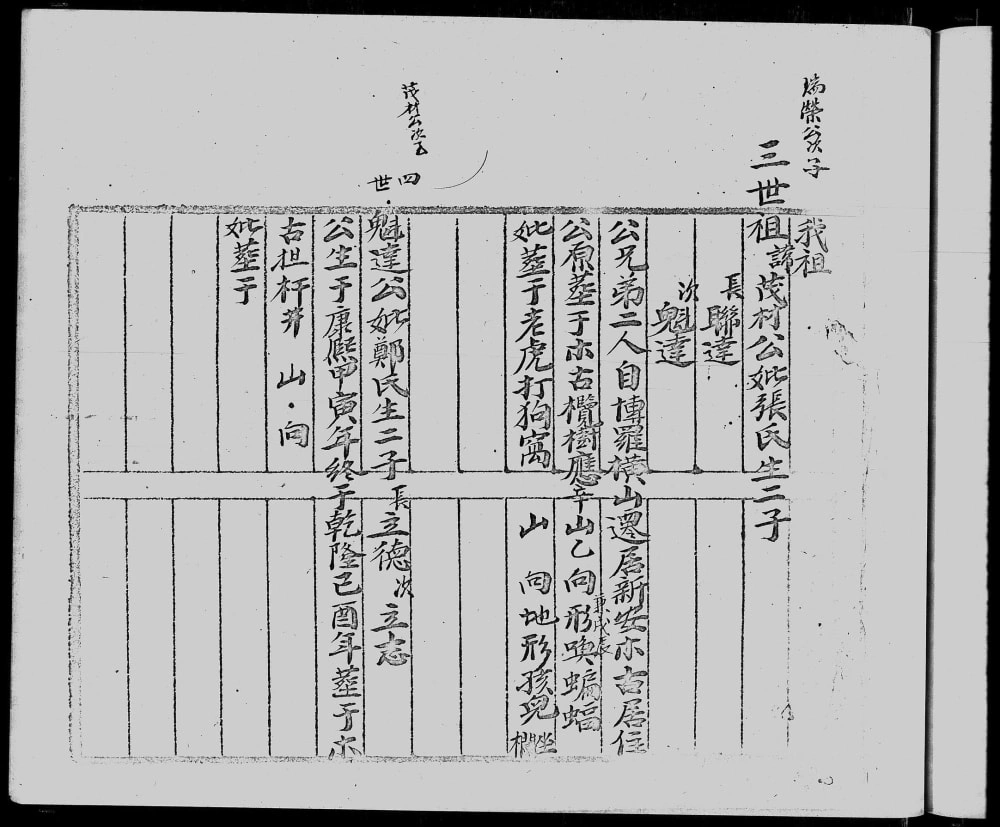 瑞榮公次子
我祖
三世祖諱茂材公妣張氏生二子
長聯達
次魁達
公兄弟二人自博羅橫山遷居新安朩古居住
公原塟于朩古欖樹應辛山乙向形喚蝙蝠
兼戌辰
妣塟于老虎打狗窩 山 向地形孩兒坐欄
茂材公次子
四世
魁達公妣鄭氏生二子長立德次立志
公生于康熙甲寅年終于乾隆己酉年塟于朩
古担杆井 山·向
妣塟于